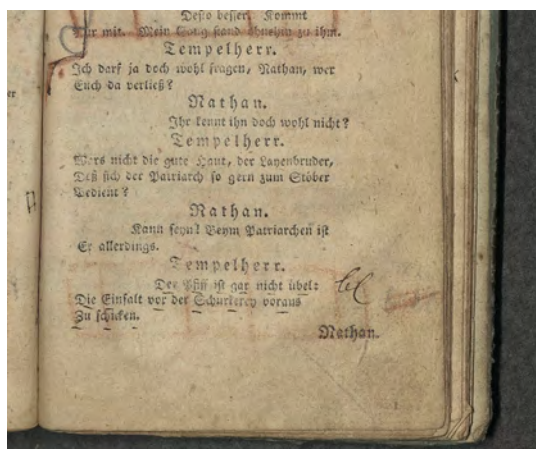 Desto besser. Kommt
Nur mit. Mein Weg stand ohnehin zu ihm.
Tempelherr.
Ich darf ja doch wohl fragen, Nathan, wer
Euch da verließ?
Nathan.
Ihr kennt ihn doch wohl nicht?
Tempelherr.
Wars nicht die gute Haut, der Layenbruder,
Deß sich der Patriarch so gern zum Stöber
Bedient?
Nathan.
Kann seyn! Beym Patriarchen ist
Er allerdings.
Tempelherr.
Der Pfiff ist gar nicht übel:
Die Einfalt vor der Schurkerey voraus
Zu schicken.
Nathan.
er